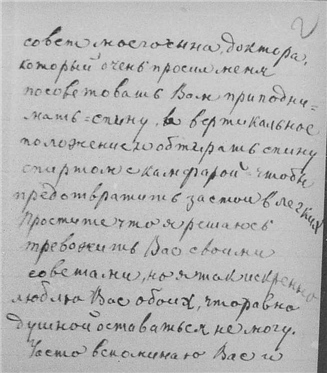 2
совет моего сына, доктора,
который очень просил меня
посоветовать Вам приподни-
мать спину, в вертикальное
положение и обтирать спину
спиртом с камфарой чтобы
предотвратить застои в легких
Простите что я решаюсь
тревожить Вас своими
советами, но я так искренно
люблю Вас обоих, что равно
душной оставаться не могу.
Часто вспоминаю Вас и